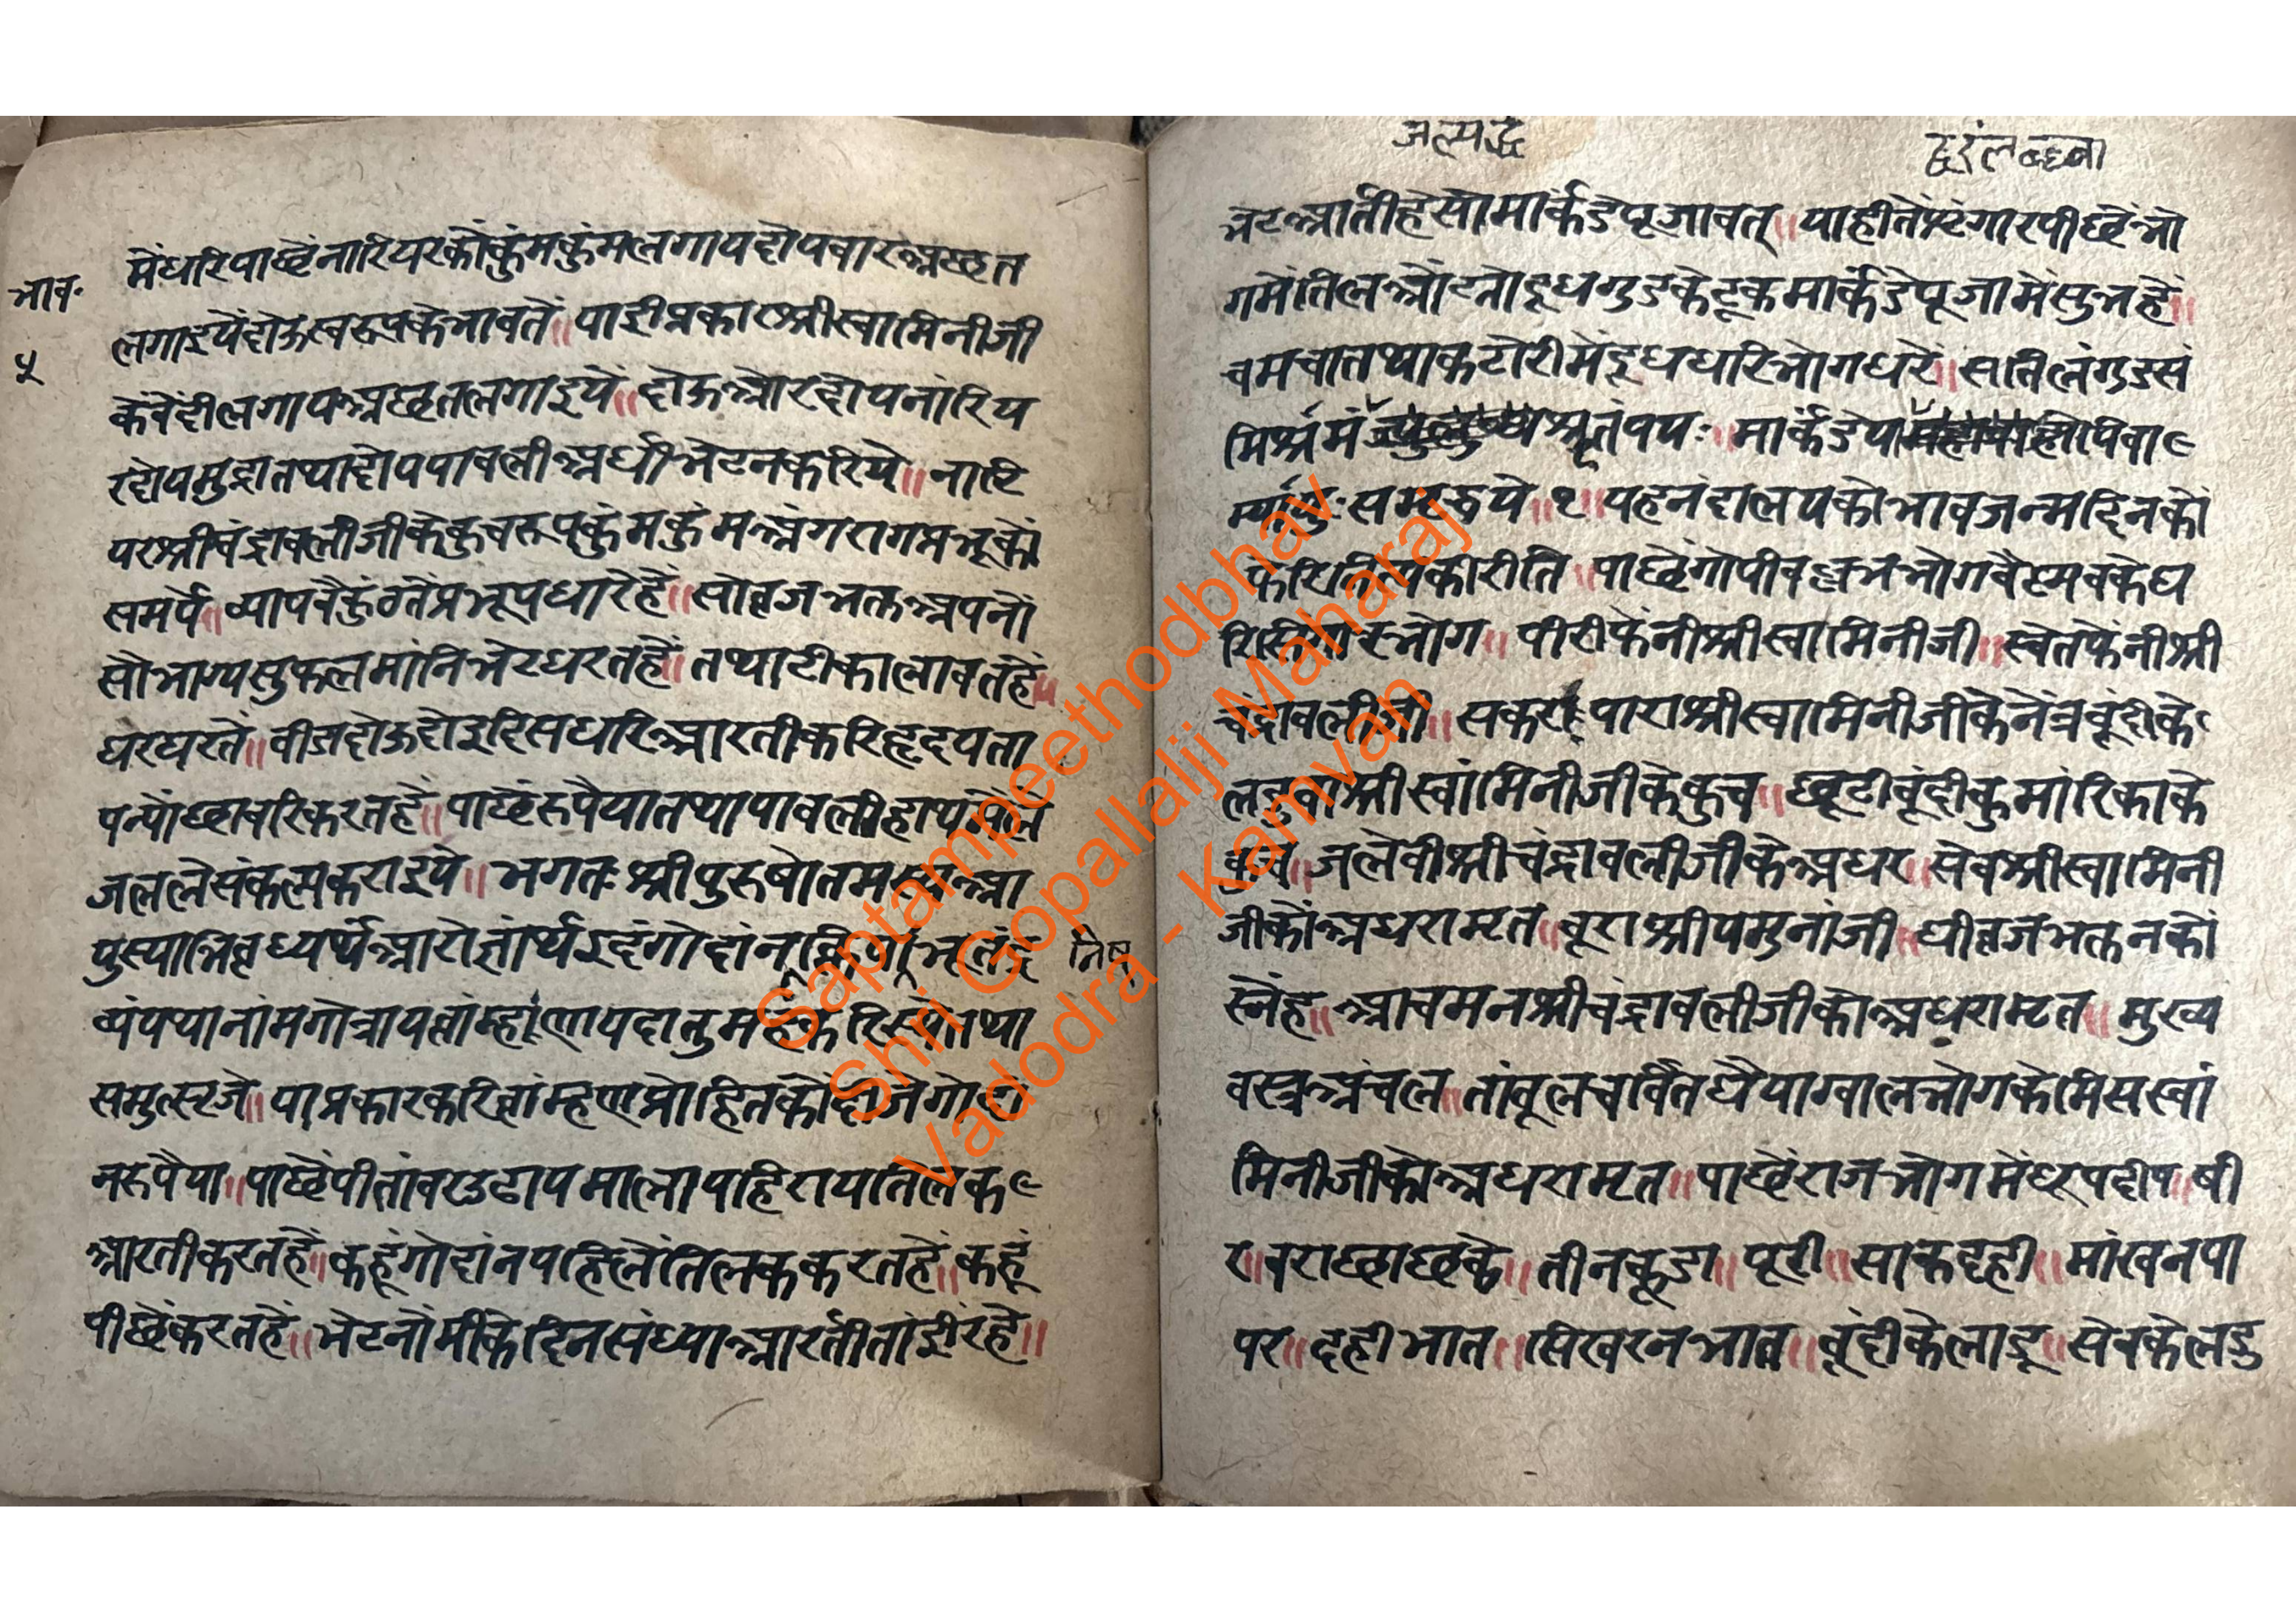 भाव॰
५
मेंधारिपाछेंनारियरकोंकुंमकुंमलगायदोयवारअछत
लगाइयेंदोऊस्वरूपकेभावतें॥ याहीप्रकारश्रीस्वामिनीजी
केंवेंदीलगायअछतलगाइयें॥ दोऊओरदोयनारिय
रदोयमुद्रातथादोयपावलीअधीभेटनकरिये॥ नारि
यरश्रीचंद्रावलीजीकेकुचरूपकुंमकुंमअंगरागप्रभूकों
समर्पें॥ व्यापवैकुंठतेंप्रभूपधारेहैं॥ सोव्रजभक्तअपनों
सोभाग्यसुफलमांनिभेटधरतहें॥ तथाटीकालावतहें॥
घरघरतें॥ वीडादोऊदोइदिसधरिआरतीकरिहृदयता
पन्योंछावरिकरतहें॥ पाछेंरूपैयातथापावलीहाथमेंलें
जललेसंकल्पकराइये॥ भगतः श्रीपुरुषोतमस्यआ
युस्याभिवृध्यर्थंआरोज्ञार्थंइदंगोदांन
व्यंयथानांमगोत्रायव्रांम्हणायदातुमहंकरिस्येतथा
समुत्सृजे॥ याप्रकारकरिव्रांम्हणप्रोहितकोंदीजेगोदां
नरूपैया॥ पाछेंपीतांवरउढायमालापहिरायतिलक
आरतीकरतहें॥ कहूंगोदांनपहिलेंतिलककरतहे॥ कहूं
पीछेंकरतहें॥ भेटनोंमीकेदिनसंध्याआरतीतांईरहे॥
भेटआतीहेसोमार्कंडेपूजावत्॥ याहीतेंश्रृंगारपीछेंभो
गमेंतिलओंटाओदूधगुडकेटूकमार्कंडेपूजामेंसुभहें॥
चमचातथाकटोरीमेंदूधधरिभोगधरें॥ सतिलंगुडसं
मिश्रमं श्रृतंपयः॥ मार्कंडेया पिवा
म्यायुः समृद्धये॥१॥ यहनंदालयकोभावजन्मदिनकों
पाछेंगोपीवल्लभभोगवैष्णवकेघ
भोग॥ पीरीफेंनीश्रीस्वामिनीजी॥ स्वेतफेंनीश्री
चंद्रावलीजी॥ सकरपाराश्रीस्वामिनीजीकेनेंत्रबूंदीके
लडुवाश्रीस्वांमिनीजीकेकुच॥ छूटीबूंदीकुमांरिकाके
कुच॥ जलेवीश्रीचंद्रावलीजीकेअधर॥ सेवश्रीस्वामिनी
जीकोंअधरामृत॥ बूराश्रीयमुनांजी॥ घीव्रजभक्तनकों
स्नेंह॥ आचमनश्रीचंद्रावलीजीकोअधरामृत॥ मुख्य
वस्त्रअंचल॥ तांबूलचर्वितघैयाग्वालभोगकेमिसस्वां
मिनीजीकोअधरामृत॥ पाछेंराजभोगमेंधूपदीप॥ षी
र॥ वराछाछिके॥ तीनकूडा॥ पूरी॥ साकदही॥ मांखनपा
पर॥ दहीभात॥ सिखरनभात॥ बूंदीकेलाडू॥ सेवकेलडु